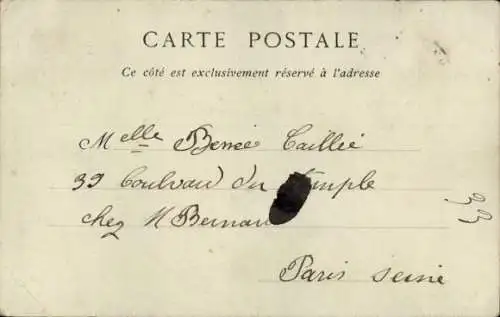 CARTE POSTALE
Ce côté est exclusivement réservé à l'adresse
Melle Benée Caillié
39 boulvard du temple
chez M Bernar
Paris Seine
33